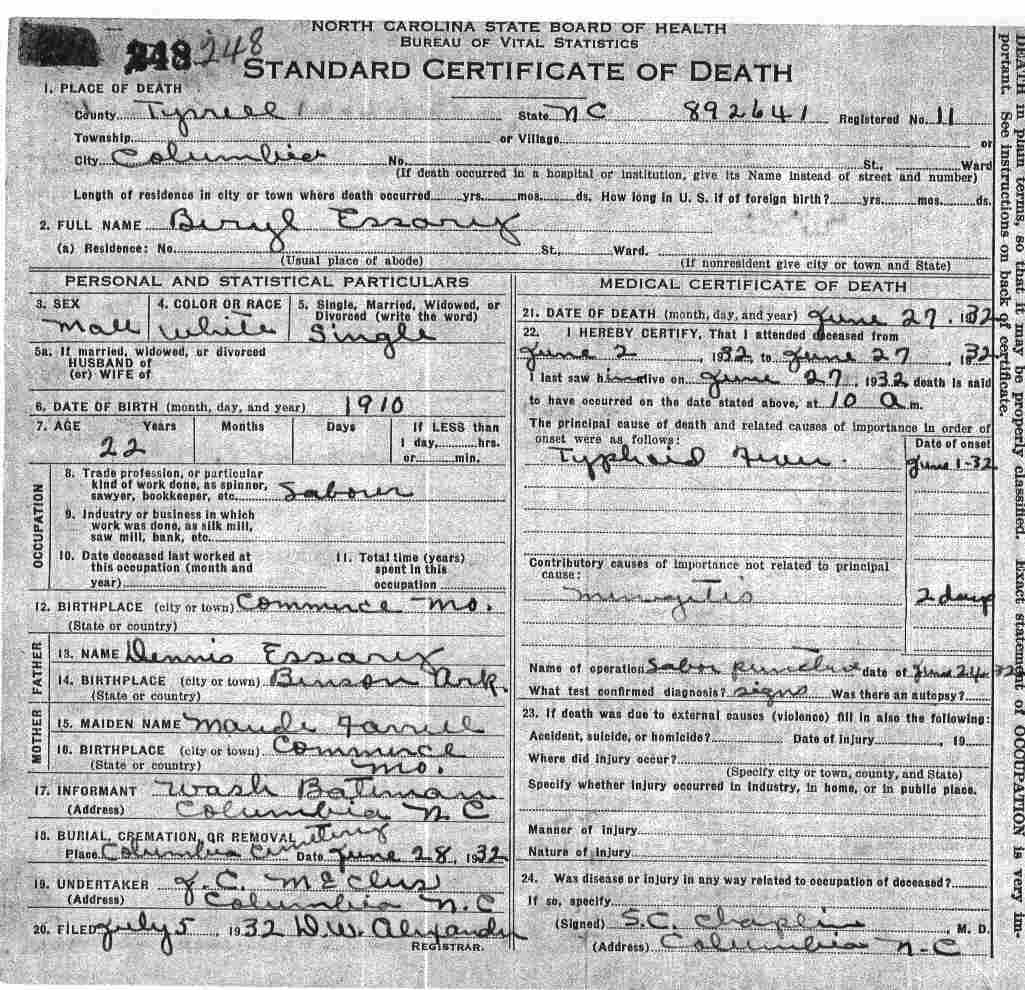 NORTH CAROLINA STATE BOARD OF HEALTH
BUREAU OF VITAL STATISTICS
248 248
STANDARD CERTIFICATE OF DEATH
1. PLACE OF DEATH
County Tyrrell State NC 892641 Registered No. 11
Township or Village or
City Columbia No. St., Ward
(If death occurred in a hospital or institution, give its Name instead of street and number)
Length of residence in city or town where death occurred yrs. mos. ds. How long in U. S. if of foreign birth? yrs. mos. ds.
2. FULL NAME Beryl Essary
(a) Residence: No. St., Ward.
(Usual place of abode) (If nonresident give city or town and State)
PERSONAL AND STATISTICAL PARTICULARS
3. SEX 4. COLOR OR RACE 5. Single, Married, Widowed, or
Divorced (write the word)
Male White Single
5a. If married, widowed, or divorced
HUSBAND of
(or) WIFE of
6. DATE OF BIRTH (month, day, and year) 1910
7. AGE Years Months Days If LESS than
22 1 day, hrs.
or min.
OCCUPATION
8. Trade profession, or particular
kind of work done, as spinner,
sawyer, bookkeeper, etc. Laborer
9. Industry or business in which
work was done, as silk mill,
saw mill, bank, etc.
10. Date deceased last worked at 11. Total time (years)
this occupation (month and spent in this
year) occupation
12. BIRTHPLACE (city or town) Commerce Mo.
(State or country)
FATHER
13. NAME Dennis Essary
14. BIRTHPLACE (city or town) Binson Ark.
(State or country)
MOTHER
15. MAIDEN NAME Maude Farrell
16. BIRTHPLACE (city or town) Commerce
(State or country) Mo.
17. INFORMANT Wash Bateman
(Address) Columbia NC
18. BURIAL, CREMATION, OR REMOVAL
Place Columbia Cemetery Date June 28, 1932
19. UNDERTAKER J.C. McClus
(Address) Columbia N.C
20. FILED July 5 1932 D.W. Alexander
REGISTRAR.
MEDICAL CERTIFICATE OF DEATH
21. DATE OF DEATH (month, day, and year) June 27. 1932
22. I HEREBY CERTIFY, That I attended deceased from
June 2, 1932, to June 27 1932
I last saw him alive on June 27, 1932 death is said
to have occurred on the date stated above, at 10 a m.
The principal cause of death and related causes of importance in order of
onset were as follows: Date of onset
Typhoid Fever. June 1-32
Contributory causes of importance not related to principal
cause:
Meningitis 2 days
Name of operation Labor puncture date of June 24 32
What test confirmed diagnosis? signs Was there an autopsy?
23. If death was due to external causes (violence) fill in also the following:
Accident, suicide, or homicide? Date of injury, 19
Where did injury occur?
(Specify city or town, county, and State)
Specify whether injury occurred in industry, in home, or in public place.
Manner of injury
Nature of injury
24. Was disease or injury in any way related to occupation of deceased?
If so, specify
(Signed) S.C. Chaplin, M. D.
(Address) Columbia N-C
DEATH in plain terms, so that it may be properly classified. Exact statement of OCCUPATION is very im-
portant. See instructions on back of certificate.